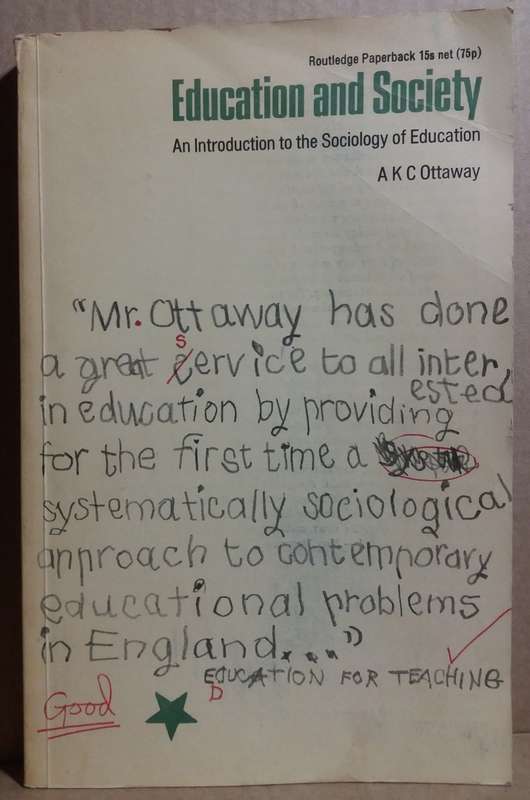 Routledge Paperback 15s net (75p)
Education and Society
An Introduction to the Sociology of Education
A K C Ottaway
"Mr. Ottaway has done
s
a great service to all inter,
ested
in education by providing
for the first time a
systematically sociological
approach to contemporary
educational problems
in England...."
EDUCATION FOR TEACHING
D
Good